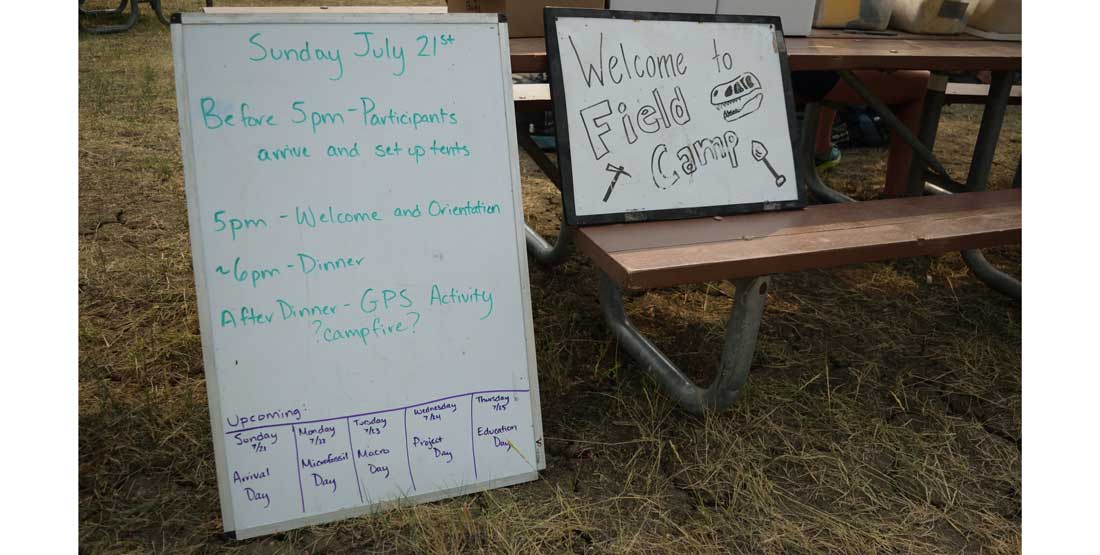 Sunday July 21st
Before 5pm - Participants
arrive and set up tents
5pm - Welcome and Orientation
~6pm - Dinner
After Dinner - GPS Activity
?campfire?
Upcoming:
Sunday
7/21
Arrival
Day
Monday
7/22
Microfossil
Day
Tuesday
7/23
Macro
Day
Wednesday
7/24
Project
Day
Thursday
7/25
Education
Day
Welcome to
Field
Camp